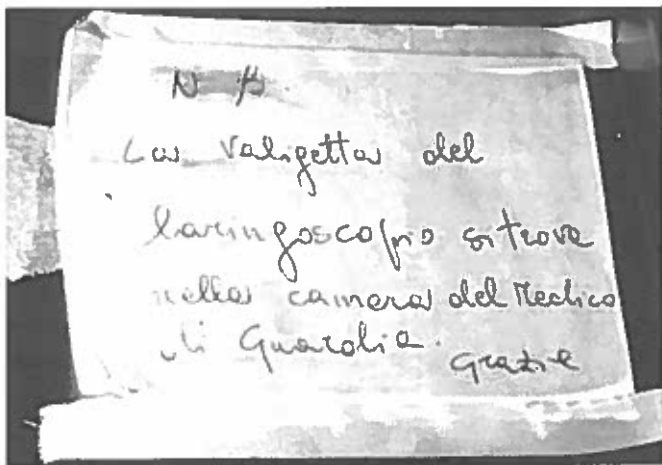 N B
La valigetta del
laringoscopio si trova
nella camera del Medico
di Guardia.
Grazie